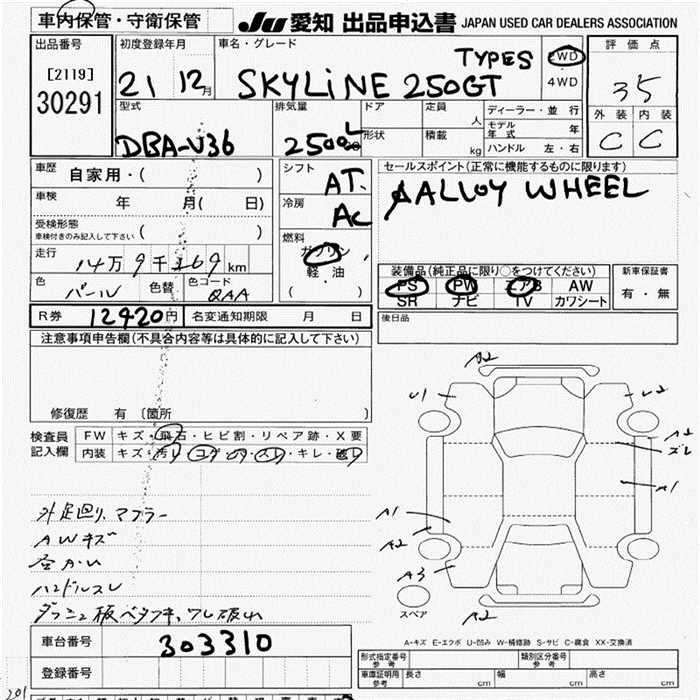 車内保管・守衛保管
JU 愛知 出品申込書 JAPAN USED CAR DEALERS ASSOCIATION
出品番号
[2119]
30291
初度登録年月
21 12月
車名・グレード
SKYLINE 250GT TYPES
2WD
4WD
評価点
35
外装 内装
C C
型式
DBA-V36
排気量
2500
ドア
形状
定員
人
積載
kg
ディーラー・並行
モデル年式 年
ハンドル 左・右
車歴
自家用・( )
車検
年 月( 日)
受検形態
車検付きのみ記入して下さい ( )
走行
14万9千269km
色
パール
色替
色コード
QAA
シフト
AT
冷房
AC
燃料
ガソリン
軽・油
( )
セールスポイント(正常に機能するものに限ります)
ALLOY WHEEL
装備品(純正品に限り○をつけてください)
PS PW エアB AW
SR ナビ TV カワシート
新車保証書
有・無
R券 12420円
名変通知期限 月 日
後日品
注意事項申告欄(不具合内容等は具体的に記入して下さい)
修復歴 有 〔箇所 〕
検査員
記入欄
FW キズ・飛石・ヒビ割・リペア跡・X要
内装 キズ・汚レ・コゲ・穴・スレ・キレ・破レ
外足回り、マフラー
AWキズ
ハンドルスレ
A2
U1
U2
A2
ズレ
A1
A1
A2
A3
A2
スペア
A-キズ E-エクボ U-凹み W-補修跡 S-サビ C-腐食 XX-交換済
車台番号
303310
登録番号
型式指定番号
参考
類別区分番号
参考
車庫証明用
参考
長さ cm
幅 cm
高さ cm
201